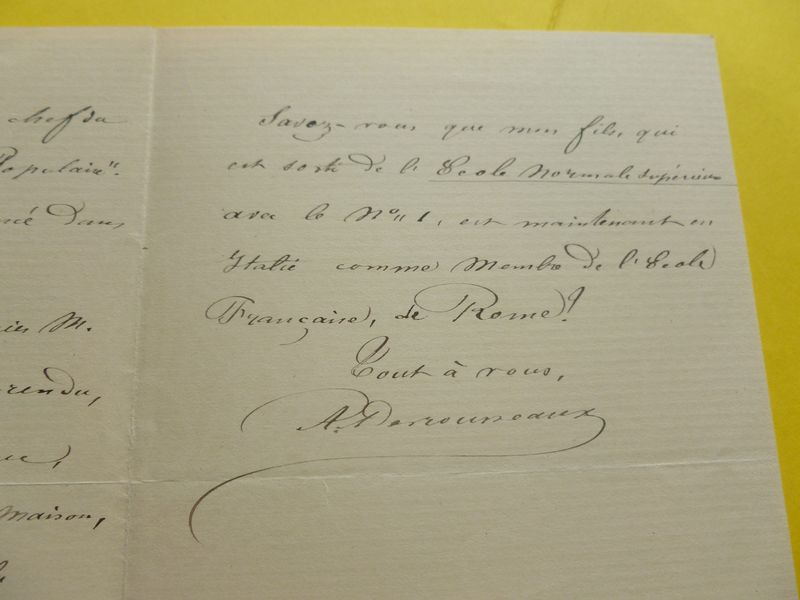 chef du
Populaire".
né dans
M.
rendu,
maison,
Savez-vous que mon fils, qui
est sorti de l'École Normale supérieure
avec le N° 1, est maintenant en
Italie comme Membre de l'École
Française, de Rome?
Tout à vous,
A. Desrousseaux